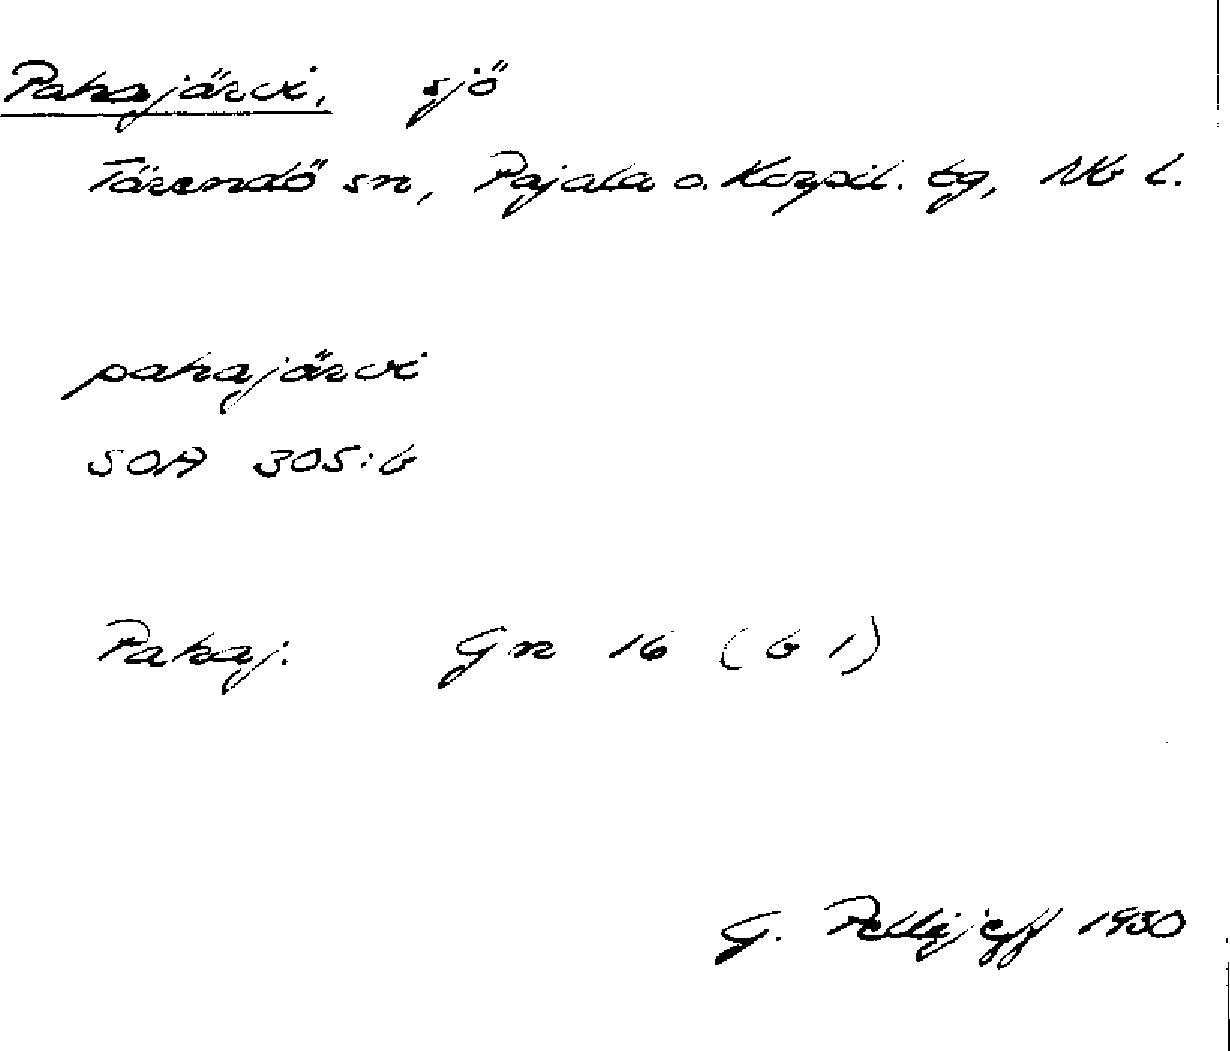 Pahajärvi, sjö
Tärendö sn, Pajala o. Korpil. tg, Nb l.
pahajärvi
SOA 305:6
Pahaj. Gn 16 (b 1)
G. Pellijeff 1950